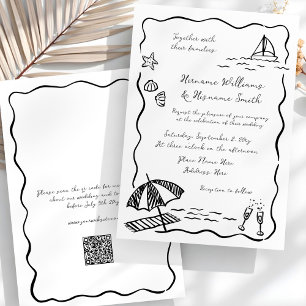 Together with
their families
Hername Williams
& Hisname Smith
Request the pleasure of your company
at the celebration of their wedding
Saturday, September 2, 20yy
At three o'clock in the afternoon
Place Name Here
Address Here
Reception to follow
Please scan the qr code for
about our wedding and to
before July 9th 20yy